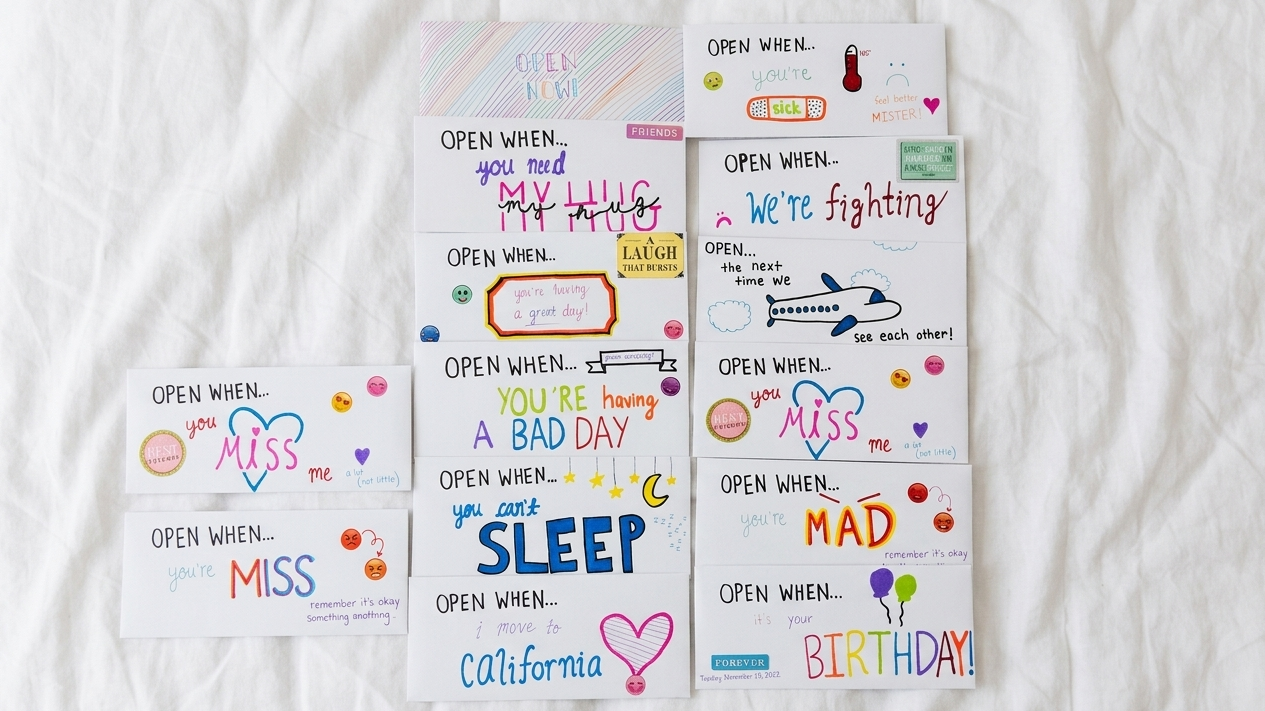 OPEN WHEN...
you
MISS
me
a lot
(not little)
OPEN WHEN...
you're
MISS
remember it's okay
OPEN
NOW!
OPEN WHEN...
FRIENDS
you need
MY HUG
my hug
OPEN WHEN...
A
LAUGH
THAT BURSTS
you're having
a great day!
OPEN WHEN...
YOU'RE having
A BAD DAY
OPEN WHEN...
you can't
SLEEP
OPEN WHEN...
i move to
California
OPEN WHEN...
105°
you're
sick
feel better
MISTER!
OPEN WHEN...
We're fighting
OPEN...
the next
time we
see each other!
OPEN WHEN...
you
MISS
me
(not little)
OPEN WHEN...
you're
MAD
remember it's okay
OPEN WHEN...
it's your
BIRTHDAY!
FOREVOR
November 19, 2022